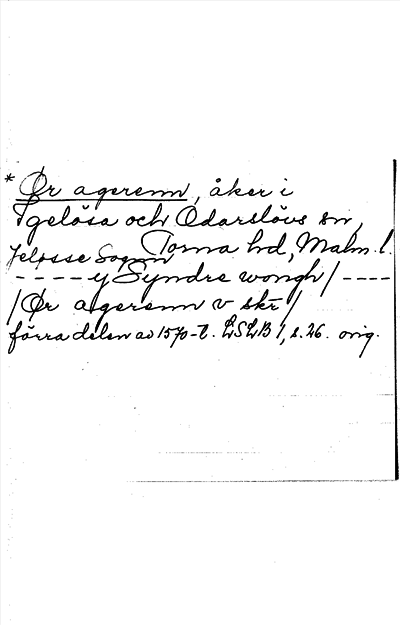 * Ør agerenn, åker i
Igelösa och Odarslövs sn,
Torna hd, Malm. l.
Jelosse Sogen
---- y Syndre wongh / ----
/ Ør agerenn v skr /
förra delen av 1570-t. LSLB 1, s. 26. orig.